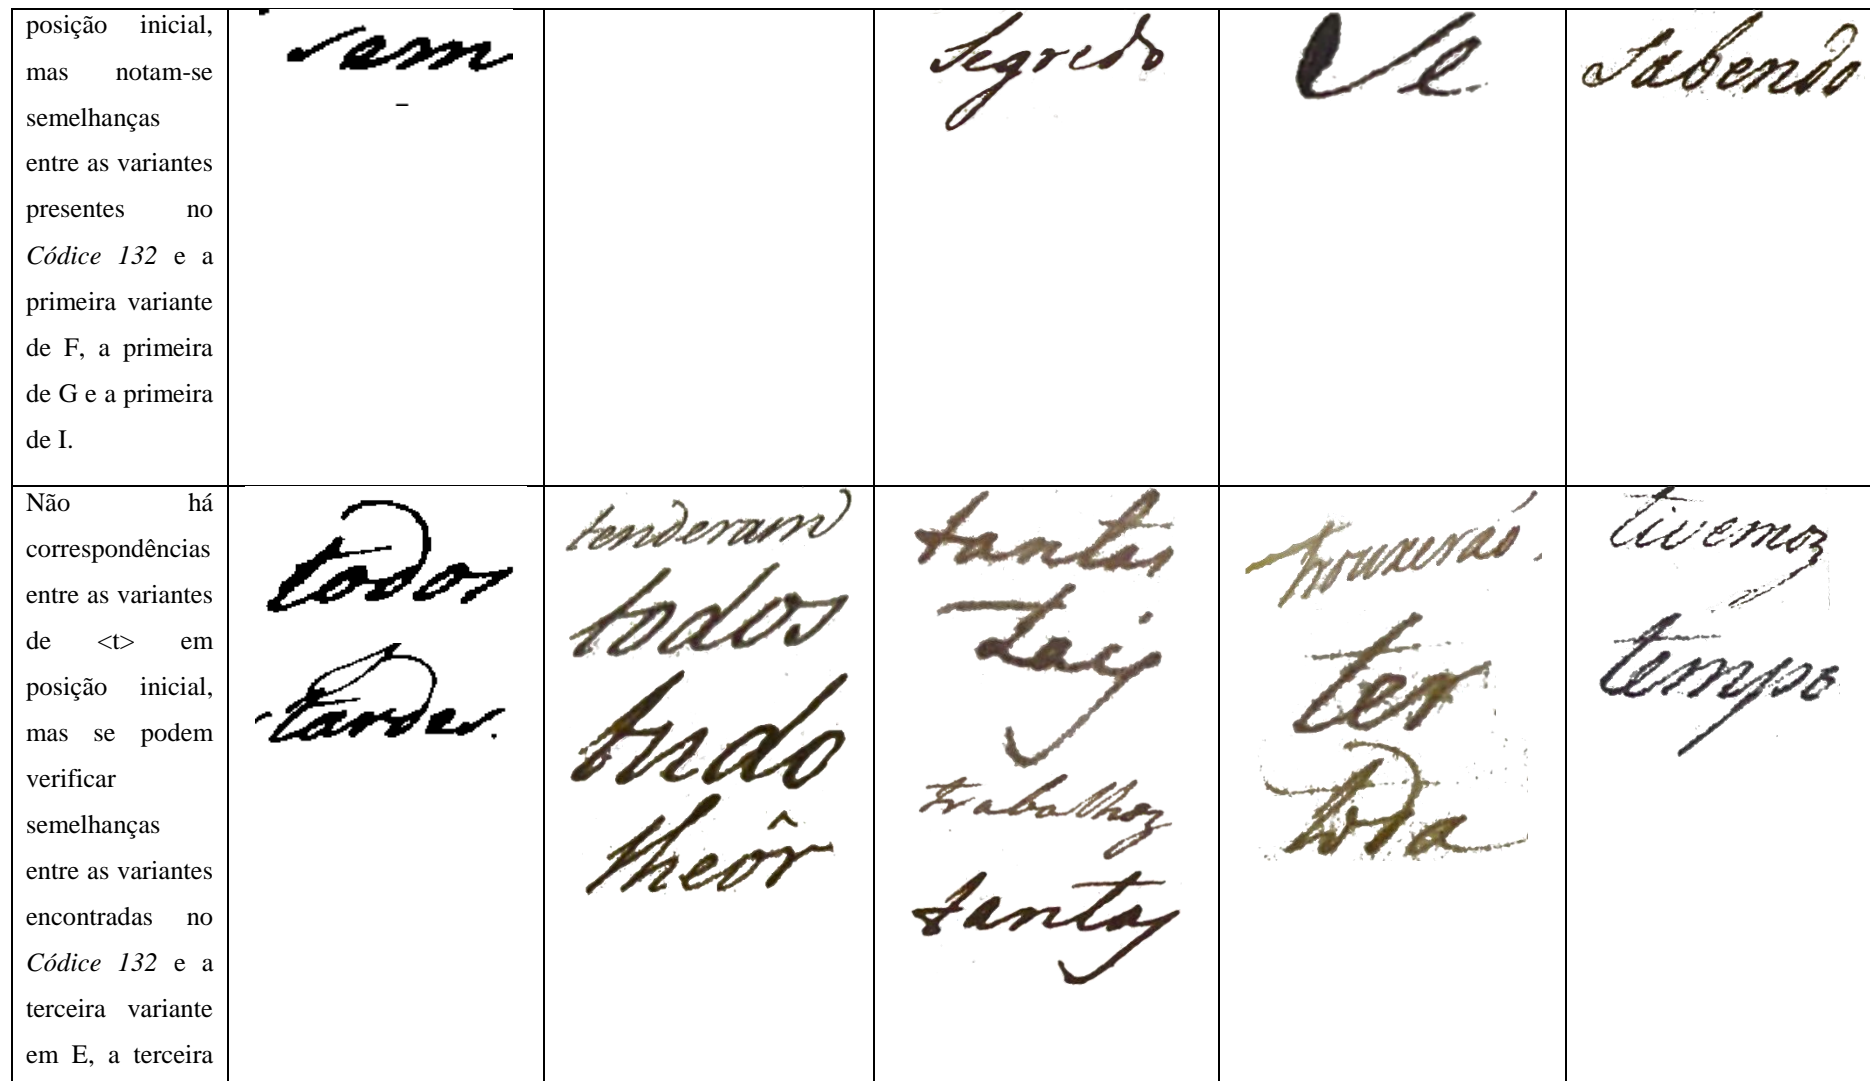 posição inicial,
mas notam-se
semelhanças
entre as variantes
presentes no
Códice 132 e a
primeira variante
de F, a primeira
de G e a primeira
de I.
sem
segredo
Se
sabendo
Não há
correspondências
entre as variantes
de <t> em
posição inicial,
mas se podem
verificar
semelhanças
entre as variantes
encontradas no
Códice 132 e a
terceira variante
em E, a terceira
todos
tardes.
tenderam
todos
tudo
theôr
tantas
taiz
trabalhoz
tantas
trouxeraõ.
ter
toda
tivemoz
tempo